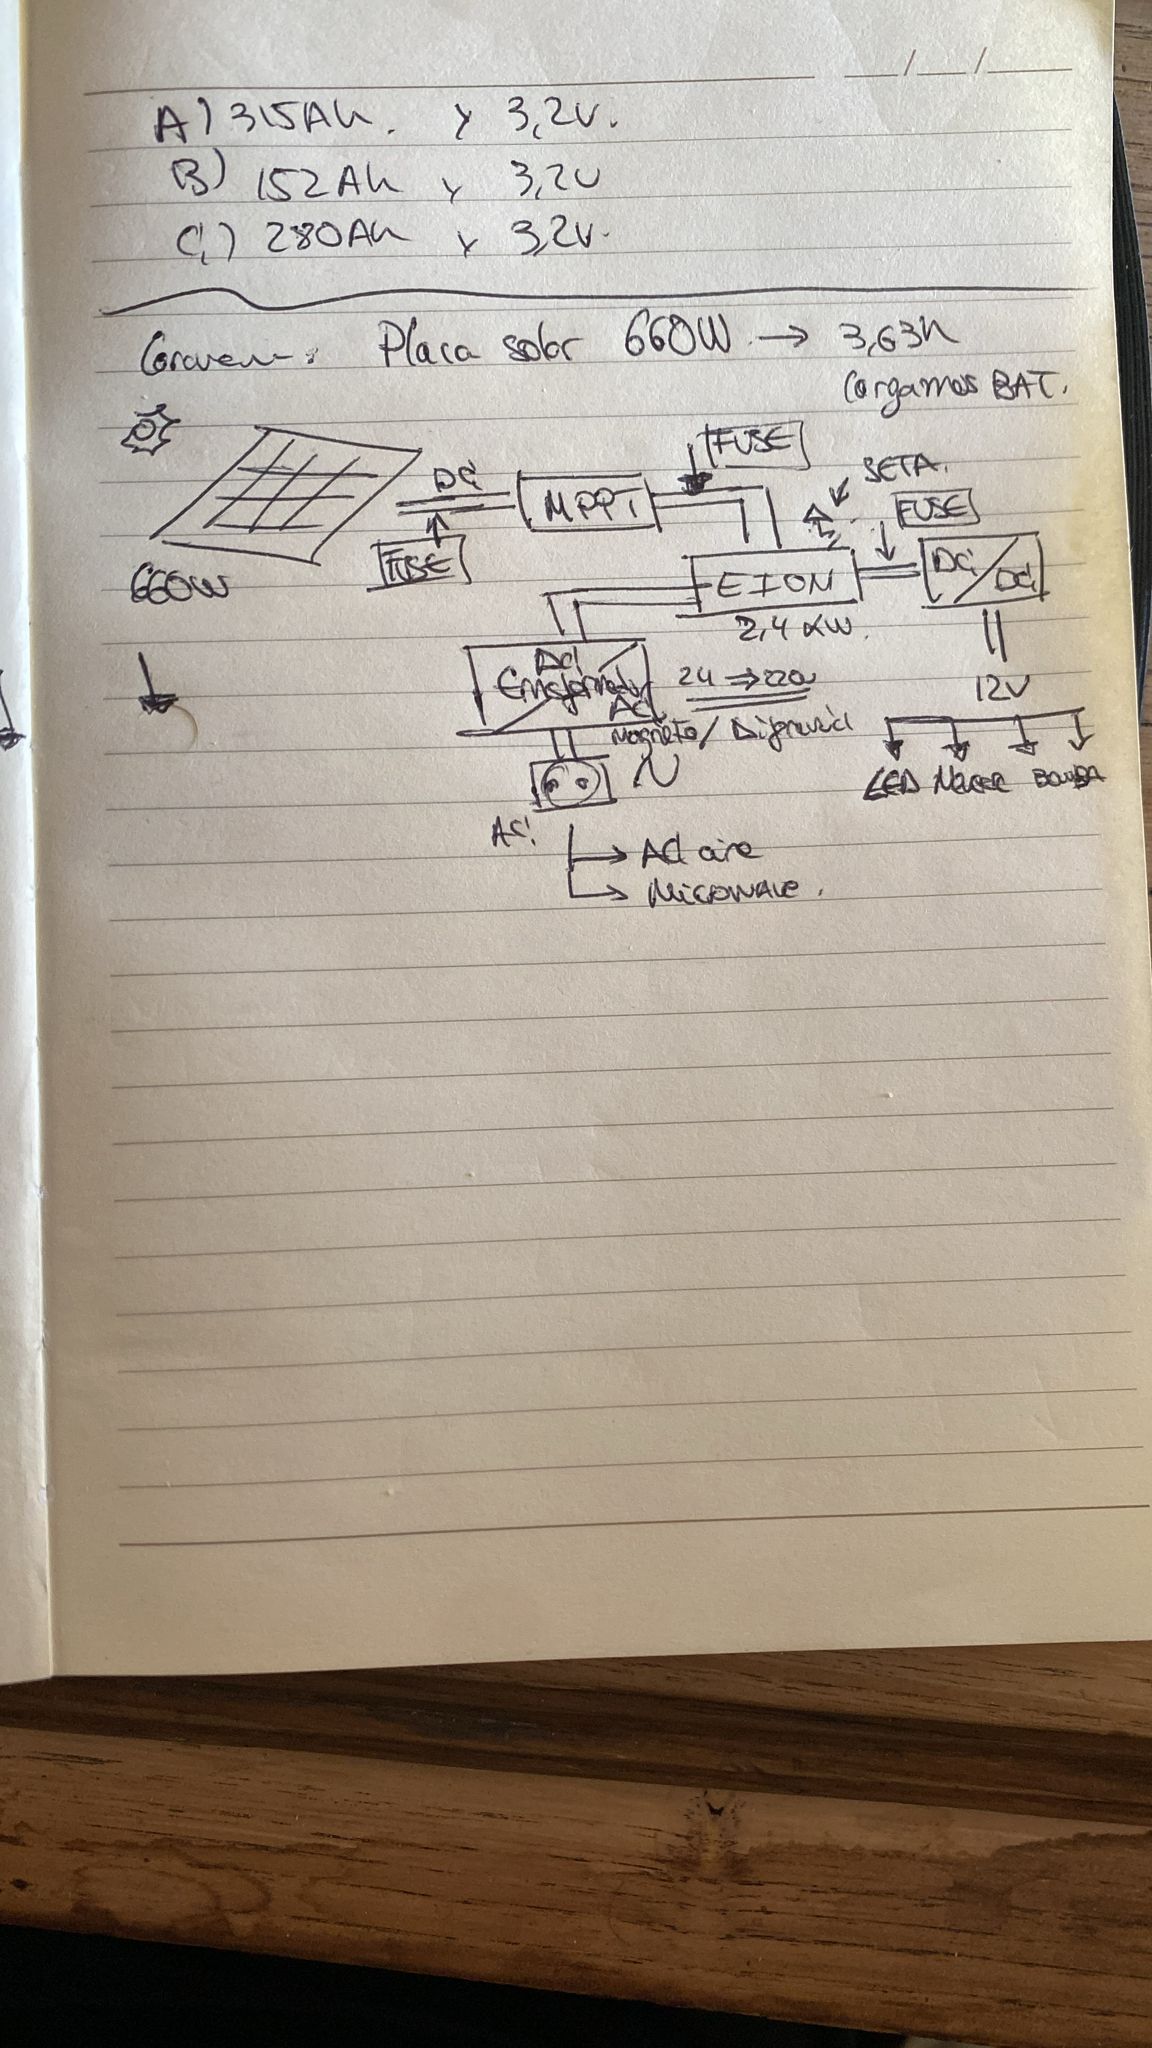 A) 315Ah. y 3,2v.
B) 152Ah y 3,2v
C) 280Ah y 3,2v.
Caravan: Placa solar 660W → 3,63h
Cargamos BAT.
FUSE
SETA.
DC
MPPT
FUSE
FUSE
DC/DC
660W
EION
2,4 kW.
DC
AC
24 ⇒ 220v
12V
Magneto / Diferencial
LED Nevera BOMBA
AC.
→ AC aire
→ Microwave.